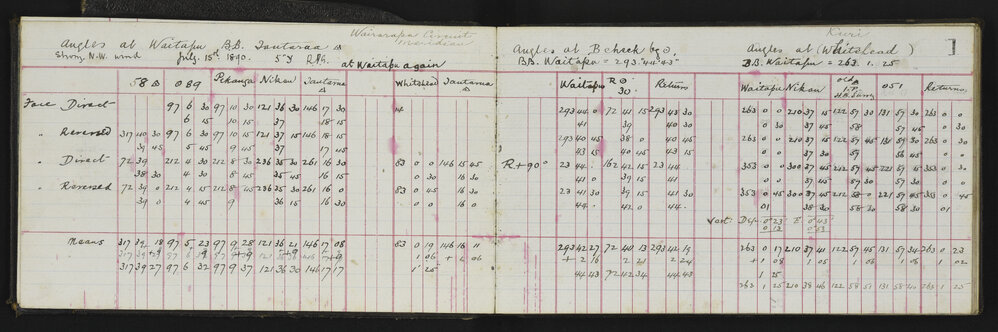 Wairarapa Circuit
Meridian
Angles at Waitapu B.B. Tautaraa △
Strong N.W. wind July. 15th 1890. 5"Y
at Waitapu again
58△ 089 Pehanga Nikau Tautaraa △ Whitehead Tautaraa △
Face Direct 97 6 30 97 10 30 121 36 30 146 17 30
6 15 10 15 37 18 15
" Reversed 317 40 30 97 6 30 97 10 15 121 37 15 146 18 15
39 45 5 45 9 45 37 17 45
" Direct 72 39 212 4 30 212 8 30 236 35 30 261 16 30 83 0 0 146 15 45
38 30 4 30 8 45 35 45 16 15 0 30 16 30
" Reversed 72 39 0 212 4 15 212 8 45 236 35 30 261 16 0 83 0 45 16 30
39 0 4 45 9 36 15 16 30 0 0 16 0
Means 317 39 18 97 5 23 97 9 28 121 36 21 146 17 08 83 0 19 146 16 11
1 06 + 1 06
317 39 27 97 6 32 97 9 37 121 36 30 146 17 17 1 25
Kuri
1
Angles at B check by ⊙.
B.B. Waitapu = 293° 44' 43"
Angles at (Whitehead)
B.B. Waitapu = 263. 1. 25
Waitapu R⊙ 30. Return
Waitapu Nikau old △ T.P. H.B. Survy 051 Returns
293 44 0 72 41 15 293 43 30 263 0 0 210 37 15 122 57 30 131 57 30 263 0 0
41 39 40 30 0 30 37 45 58 57 45 0
293 40 45 38 0 40 45 263 0 0 210 37 15 122 57 45 131 56 30 263 0 0
43 15 40 15 43 15 0 0 37 30 57 56 45
R+90° 23 44 162 42 15 23 44 353 0 0 300 37 45 212 57 45 221 57 15 353 0 30
41 0 39 15 41 37 45 57 30 57 30
23 41 30 38 15 41 30 353 0 45 300 37 45 212 58 0 221 57 45 353 0 45
44 42 0 44 01 38 30 58 30 58 30 01
Vert: Dep. 0°23' E 0°43'
0°13 0°53
293 42 27 72 40 13 293 42 19 263 0 17 210 37 41 122 57 45 131 57 34 263 0 23
+ 2 16 2 21 2 24 + 1 08 1 05 1 06 1 06 1 02
44 43 72 42 34 44 43 1 25
263 1 25 210 38 46 122 58 51 131 58 40 263 1 25